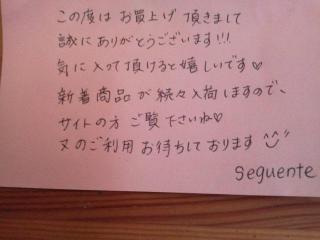 この度は お買上げ 頂きまして
誠に ありがとうございます!!!
気に 入って 頂けると嬉しいです♡
新着商品 が 続々入荷しますので、
サイトの方 ご覧 下さいね♡
又のご利用 お待ちして おります ^^
Seguente